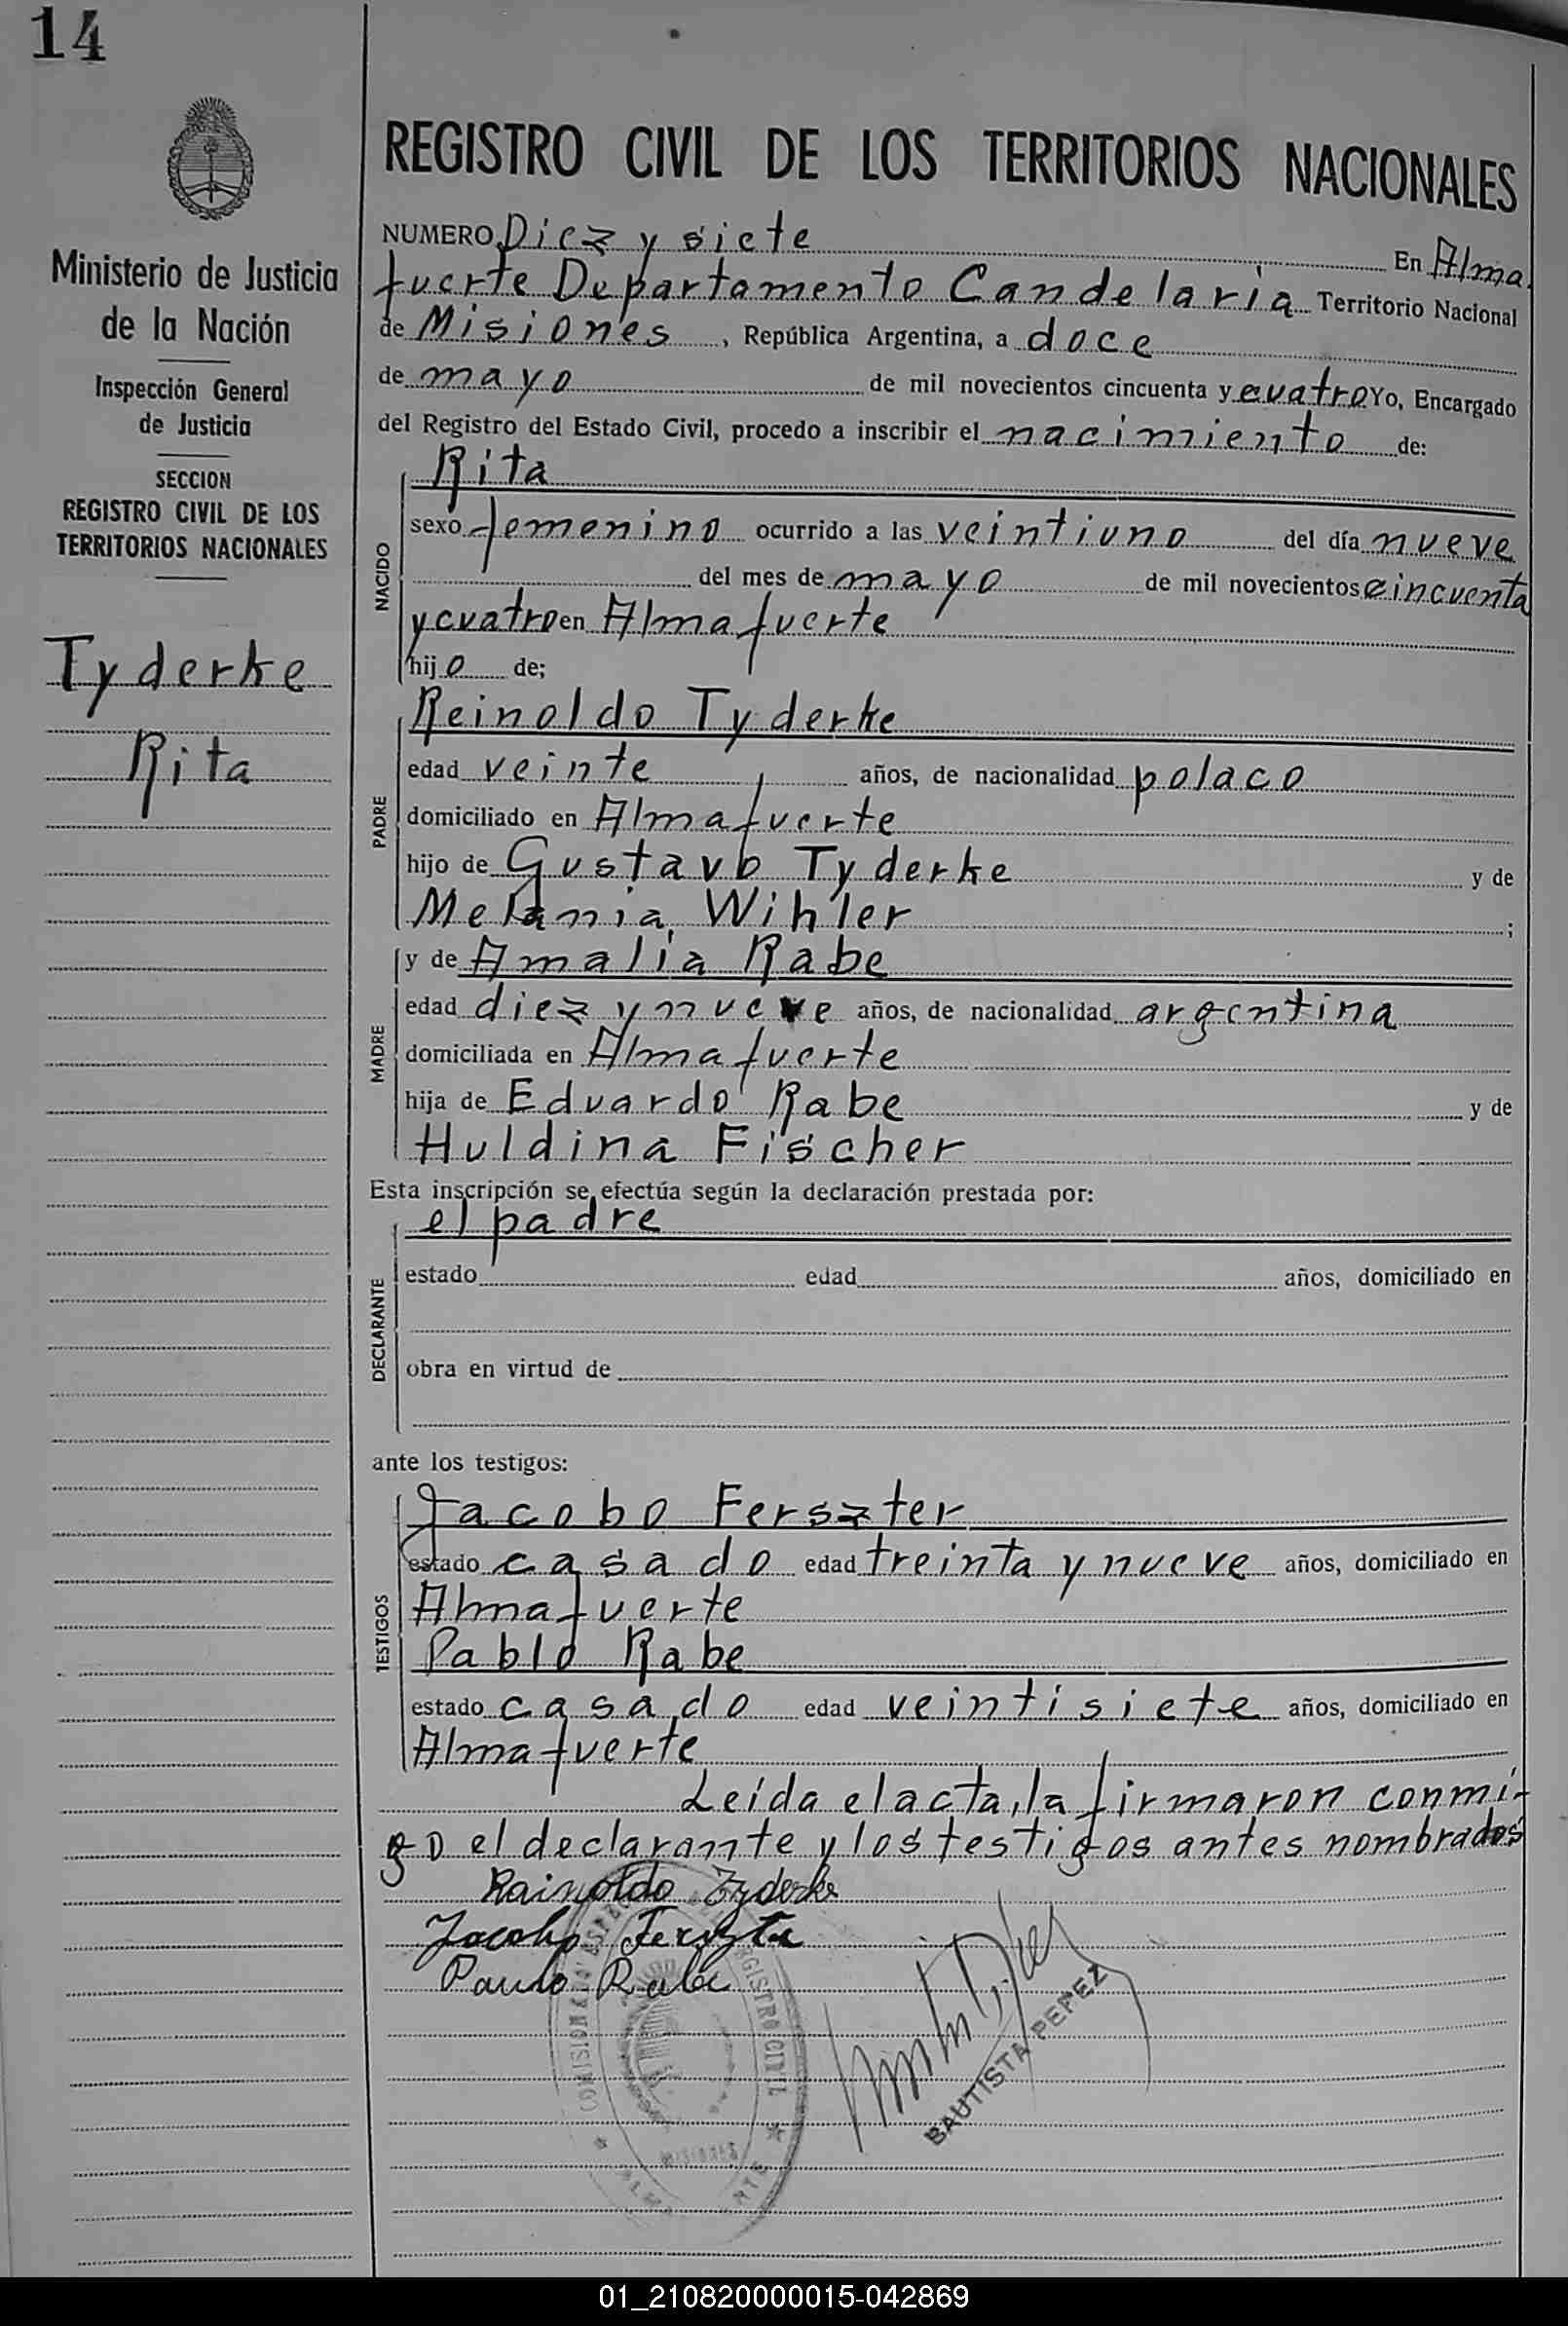 14
Ministerio de Justicia
de la Nación
Inspección General
de Justicia
SECCION
REGISTRO CIVIL DE LOS
TERRITORIOS NACIONALES
Tyderke
Rita
REGISTRO CIVIL DE LOS TERRITORIOS NACIONALES
NUMERO Diez y siete En Alma
fuerte Departamento Candelaria Territorio Nacional
de Misiones, República Argentina, a doce
de mayo de mil novecientos cincuenta y cuatro Yo, Encargado
del Registro del Estado Civil, procedo a inscribir el nacimiento de:
NACIDO
Rita
sexo femenino ocurrido a las veintiuno del día nueve
del mes de mayo de mil novecientos cincuenta
y cuatro en Almafuerte
hijo de;
PADRE
Reinoldo Tyderke
edad veinte años, de nacionalidad polaco
domiciliado en Almafuerte
hijo de Gustavo Tyderke y de
Melania Wihler ;
MADRE
y de Amalia Rabe
edad diez y nueve años, de nacionalidad argentina
domiciliada en Almafuerte
hija de Eduardo Rabe y de
Huldina Fischer
Esta inscripción se efectúa según la declaración prestada por:
DECLARANTE
el padre
estado edad años, domiciliado en
obra en virtud de
ante los testigos:
TESTIGOS
Jacobo Ferszter
estado casado edad treinta y nueve años, domiciliado en
Almafuerte
Pablo Rabe
estado casado edad veintisiete años, domiciliado en
Almafuerte
Leída el acta, la firmaron conmi-
go el declarante y los testigos antes nombrados
Rainoldo Tyderke
Jacobo
Paulo Rabe
BAUTISTA PEREZ
REGISTRO CIVIL
MISIONES
01_210820000015-042869